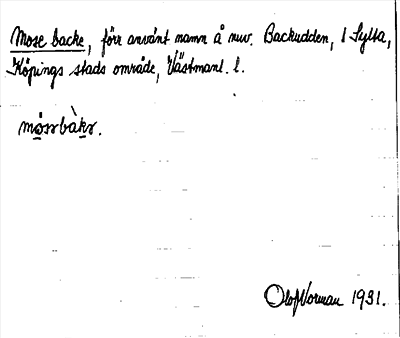 Mose backe, förr använt namn å nuv. Backudden, 1 Sylta,
Köpings stads område, Västmanl. l.
mósrbàkr.
Olof Norman 1931.